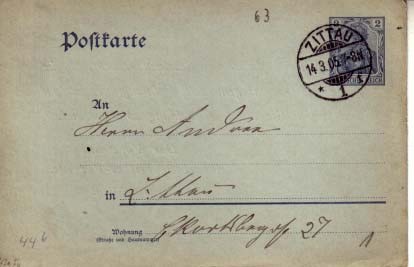 63
2 2
Postkarte
ZITTAU
14.3.05.7-8N
* 1 f
An
Herrn Andree
in Zittau
Wohnung
(Straße und Hausnummer)
27
44 b